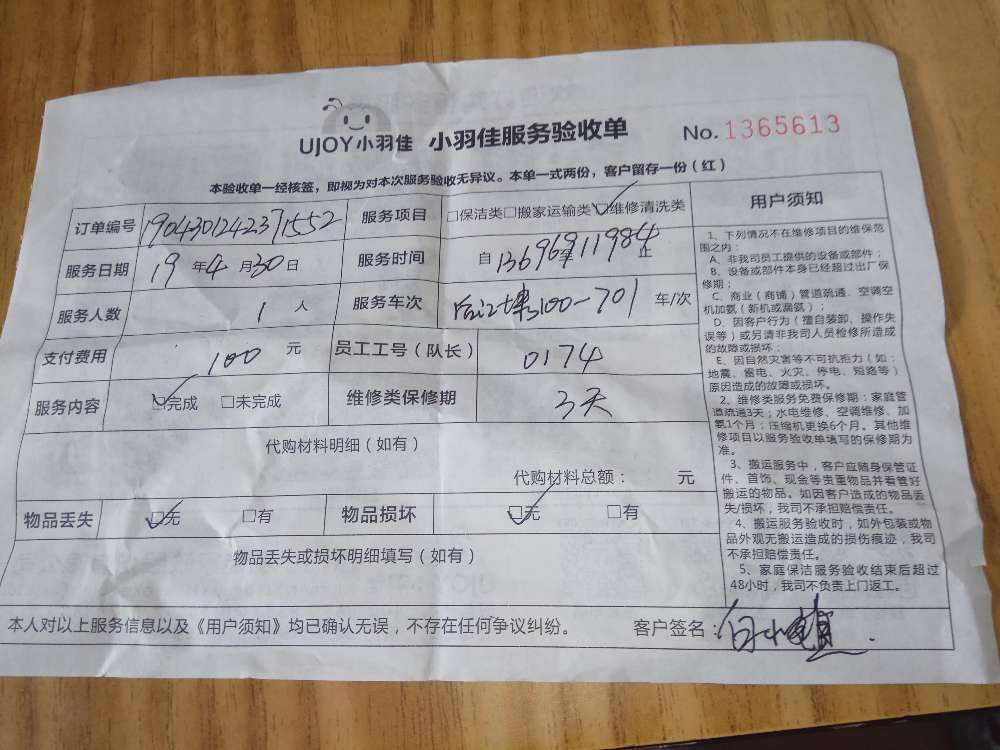 UJOY小羽佳 小羽佳服务验收单 No. 1365613
本验收单一经核签，即视为对本次服务验收无异议。本单一式两份，客户留存一份（红）
订单编号 1904301242371552 服务项目 □保洁类□搬家运输类☑维修清洗类
服务日期 19 年 4 月 30 日 服务时间 自 13696911984 止
服务人数 1 人 服务车次 后江埭100-701 车/次
支付费用 100 元 员工工号（队长） 0174
服务内容 ☑完成 □未完成 维修类保修期 3天
代购材料明细（如有）
代购材料总额： 元
物品丢失 ☑无 □有 物品损坏 ☑无 □有
物品丢失或损坏明细填写（如有）
用户须知
1、下列情况不在维修项目的维保范
围之内：
A、非我司员工提供的设备或部件；
B、设备或部件本身已经超过出厂保
修期；
C、商业（商铺）管道疏通、空调空
机加氨（新机或漏氨）；
D、因客户行为（擅自装卸、操作失
误等）或另请非我司人员检修所造成
的故障或损坏；
E、因自然灾害等不可抗拒力（如：
地震、雷电、火灾、停电、短路等）
原因造成的故障或损坏。
2、维修类服务免费保修期：家庭管
道疏通3天；水电维修、空调维修、加
氨1个月；压缩机更换6个月。其他维
修项目以服务验收单填写的保修期为
准。
3、搬运服务中，客户应随身保管证
件、首饰、现金等贵重物品并看管好
搬运的物品。如因客户造成的物品丢
失/损坏，我司不承担赔偿责任。
4、搬运服务验收时，如外包装或物
品外观无搬运造成的损伤痕迹，我司
不承担赔偿责任。
5、家庭保洁服务验收结束后超过
48小时，我司不负责上门返工。
本人对以上服务信息以及《用户须知》均已确认无误，不存在任何争议纠纷。 客户签名：